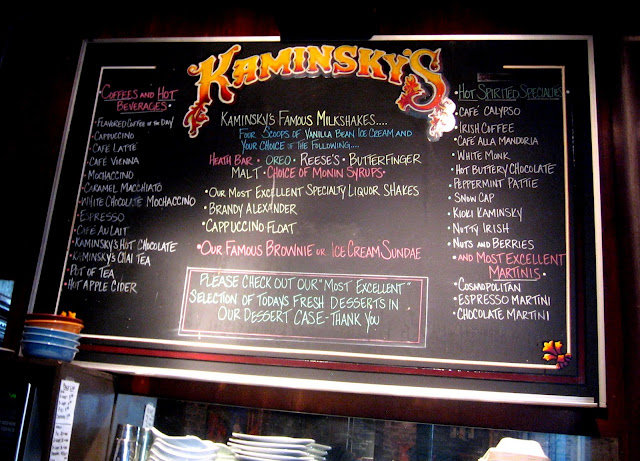 KAMINSKY'S
COFFEES AND HOT
BEVERAGES
• FLAVORED COFFEE OF THE DAY
• CAPPUCCINO
• CAFÉ LATTÉ
• CAFÉ VIENNA
• MOCHACCINO
• CARAMEL MACCHIATO
• WHITE CHOCOLATE MOCHACCINO
• ESPRESSO
• CAFÉ AU LAIT
• KAMINSKY'S HOT CHOCOLATE
• KAMINSKY'S CHAI TEA
• POT OF TEA
• HOT APPLE CIDER
KAMINSKY'S FAMOUS MILKSHAKES....
FOUR SCOOPS OF VANILLA BEAN ICE CREAM AND
YOUR CHOICE OF THE FOLLOWING....
HEATH BAR • OREO • REESE'S • BUTTERFINGER
MALT • CHOICE OF MONIN SYRUPS •
• OUR MOST EXCELLENT SPECIALTY LIQUOR SHAKES
• BRANDY ALEXANDER
• CAPPUCCINO FLOAT
• OUR FAMOUS BROWNIE OR ICE CREAM SUNDAE
PLEASE CHECK OUT OUR "MOST EXCELLENT"
SELECTION OF TODAY'S FRESH DESSERTS IN
OUR DESSERT CASE - THANK YOU
HOT SPIRITED SPECIALTIES
• CAFÉ CALYPSO
• IRISH COFFEE
• CAFÉ ALLA MANDORIA
• WHITE MONK
• HOT BUTTERY CHOCOLATE
• PEPPERMINT PATTIE
• SNOW CAP
• KIOKI KAMINSKY
• NUTTY IRISH
• NUTS AND BERRIES
• AND MOST EXCELLENT
MARTINIS •
• COSMOPOLITAN
• ESPRESSO MARTINI
• CHOCOLATE MARTINI